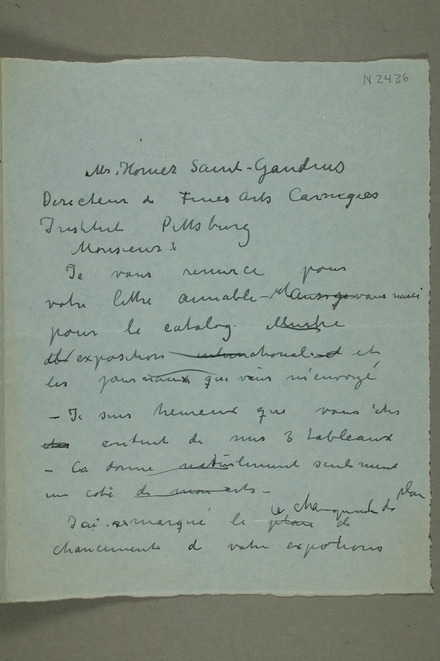 N 2436
Mr. Homer Saint-Gaudens
Directeur de Fines Arts Carnegies
Institut Pittsburg
Monsieur
Je vous remerce pour
votre lettre aimable - et aussi je vous merci
pour le catalog. illustre
des expositions internationale et
les journaux que vous m'envoyé
- Je suis heureux que vous êtes
content de mes 3 tableaux
- Ca donne naturelment seulement
un coté de mon arts -
le changement de plan
J'ai remarqué le plan de
chancements d votre expotions